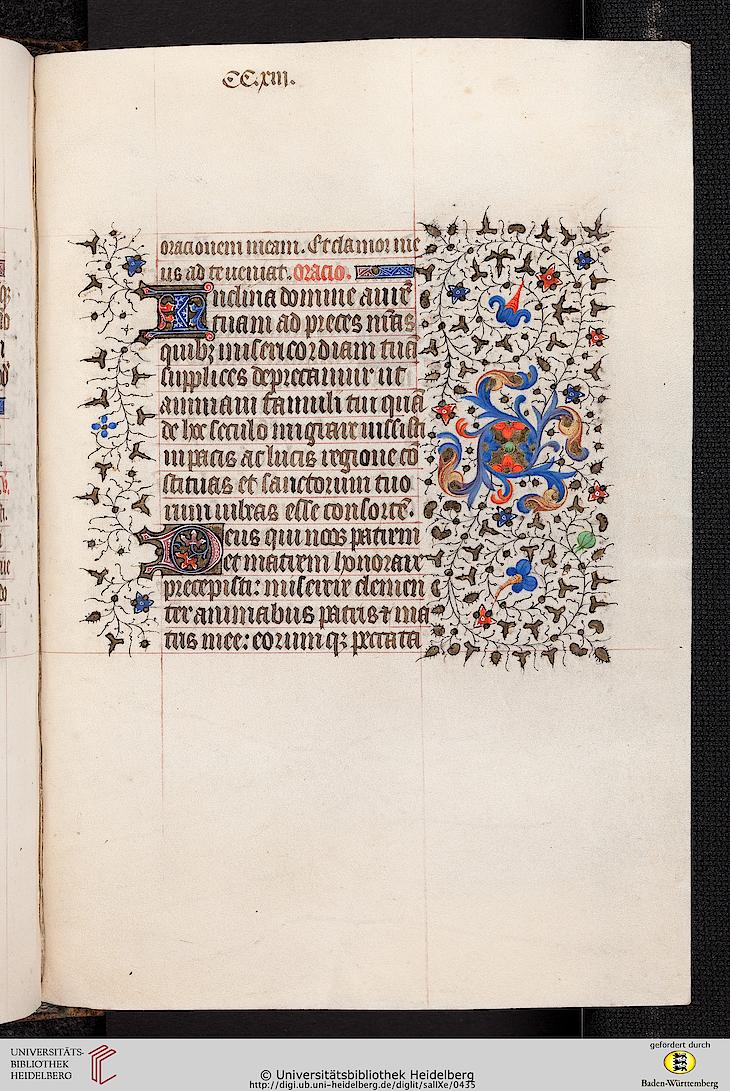 CC.xiii.
oracionem meam. Et clamor me
us ad te veniat. Oracio.
Inclina domine aurē
tuam ad preces nr̄as
quibꝫ misericordiam tuā
supplices deprecamur ut
animam famuli tui quā
de hoc seculo migrare iussisti
in pacis ac lucis regione cō
stituas et sanctorum tuo
rum iubeas esse consortē.
Deus qui nos patrem
et matrem honorare
precepisti: miserere clemen
ter animabus patris ⁊ ma
tris mee: eorum qꝫ peccata
UNIVERSITÄTS-
BIBLIOTHEK
HEIDELBERG
© Universitätsbibliothek Heidelberg
http://digi.ub.uni-heidelberg.de/diglit/salIXe/0435
gefördert durch
Baden-Württemberg